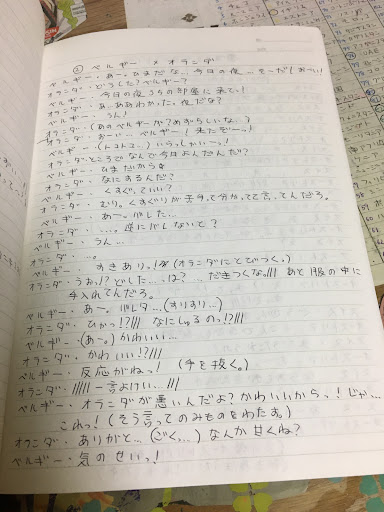 ② ベルギー × オランダ
ベルギー・あー。ひまだな…今日の夜…そーだ!おーい!
オランダ・どうした?ベルギー?
ベルギー・今日の夜うちの部屋に来て。!
オランダ・あ、ああわかった。夜だな?
ベルギー・うん!
オランダ・(あのベルギーが?めずらしいな…?
オランダ・おーい…ベルギー!来たぞーっ!
ベルギー・(トコトコ…)いらっしゃいーっ!
オランダ・ところでなんで今日よんだんだ?
ベルギー・ひまだから
オランダ・なにするんだ?
ベルギー くすぐっていい?
オランダ・むり。くすぐりが苦手って分かってて言ってんだろ。
ベルギー・あー。バレた…
オランダ・…。逆にバレないって?
ベルギー・うん…
オランダ・…。
ベルギー・すきありっ!(オランダにとびつく。)
オランダ・うおっ!?どした…っは? …だきつくな。/// あと服の中に
手入れてんだろ。
ベルギー・あー。バレタ…(すりすり…)
オランダ・ひかっ!?/// なにしゅるのっ!?///
ベルギー・(あー。)かわいい…
オランダ・かわいい!?///
ベルギー・反応がねっ! (手を抜く。)
オランダ・///// 一言よけい…///
ベルギー・オランダが悪いんだよ?かわいいからっ!じゃ…
これっ!(そう言ってのみものをわたす。)
オランダ・ありがと…(ごくっ…)なんか甘くね?
ベルギー・気のせいっ!